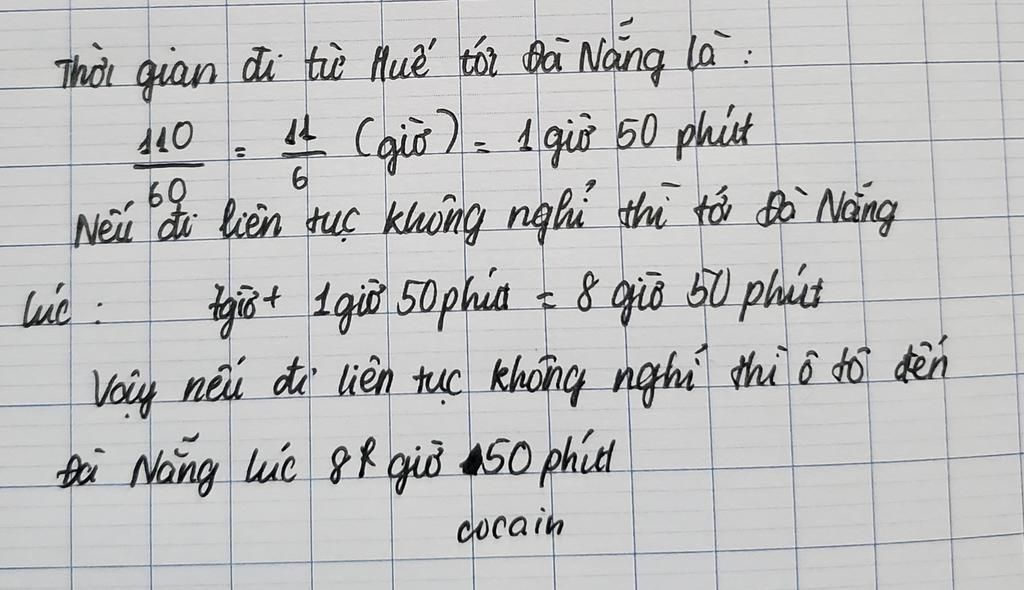 Thời gian đi từ Huế tới Đà Nẵng là :
110/60 = 11/6 (giờ) = 1 giờ 50 phút
Nếu đi liên tục không nghỉ thì tới Đà Nẵng
lúc : 7giờ + 1 giờ 50 phút = 8 giờ 50 phút
Vậy nếu đi liên tục không nghỉ thì ô tô đến
Đà Nẵng lúc 8 giờ 50 phút
cocain